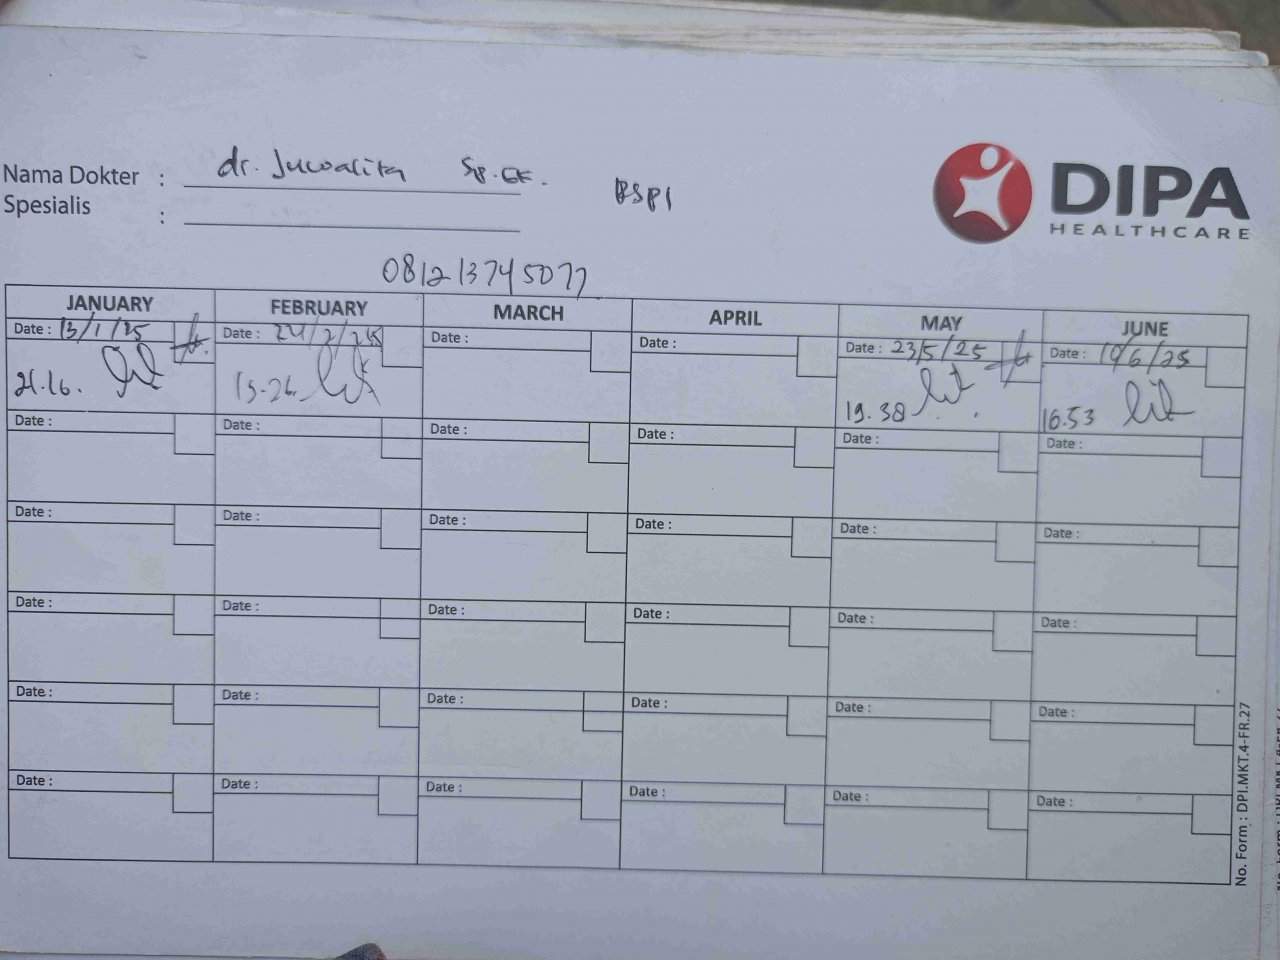 Nama Dokter : dr. Juwalita Sp. GK. RSPI
Spesialis :
DIPA
HEALTHCARE
081213745077
JANUARY FEBRUARY MARCH APRIL MAY JUNE
Date : 13/1/25 Date : 24/2/25 Date : Date : Date : 23/5/25 Date : 10/6/25
21.16. 15.26. 19.38 16.53
Date : Date : Date : Date : Date : Date :
Date : Date : Date : Date : Date : Date :
Date : Date : Date : Date : Date : Date :
Date : Date : Date : Date : Date : Date :
Date : Date : Date : Date : Date : Date :
No. Form : DPI.MKT.4-FR.27